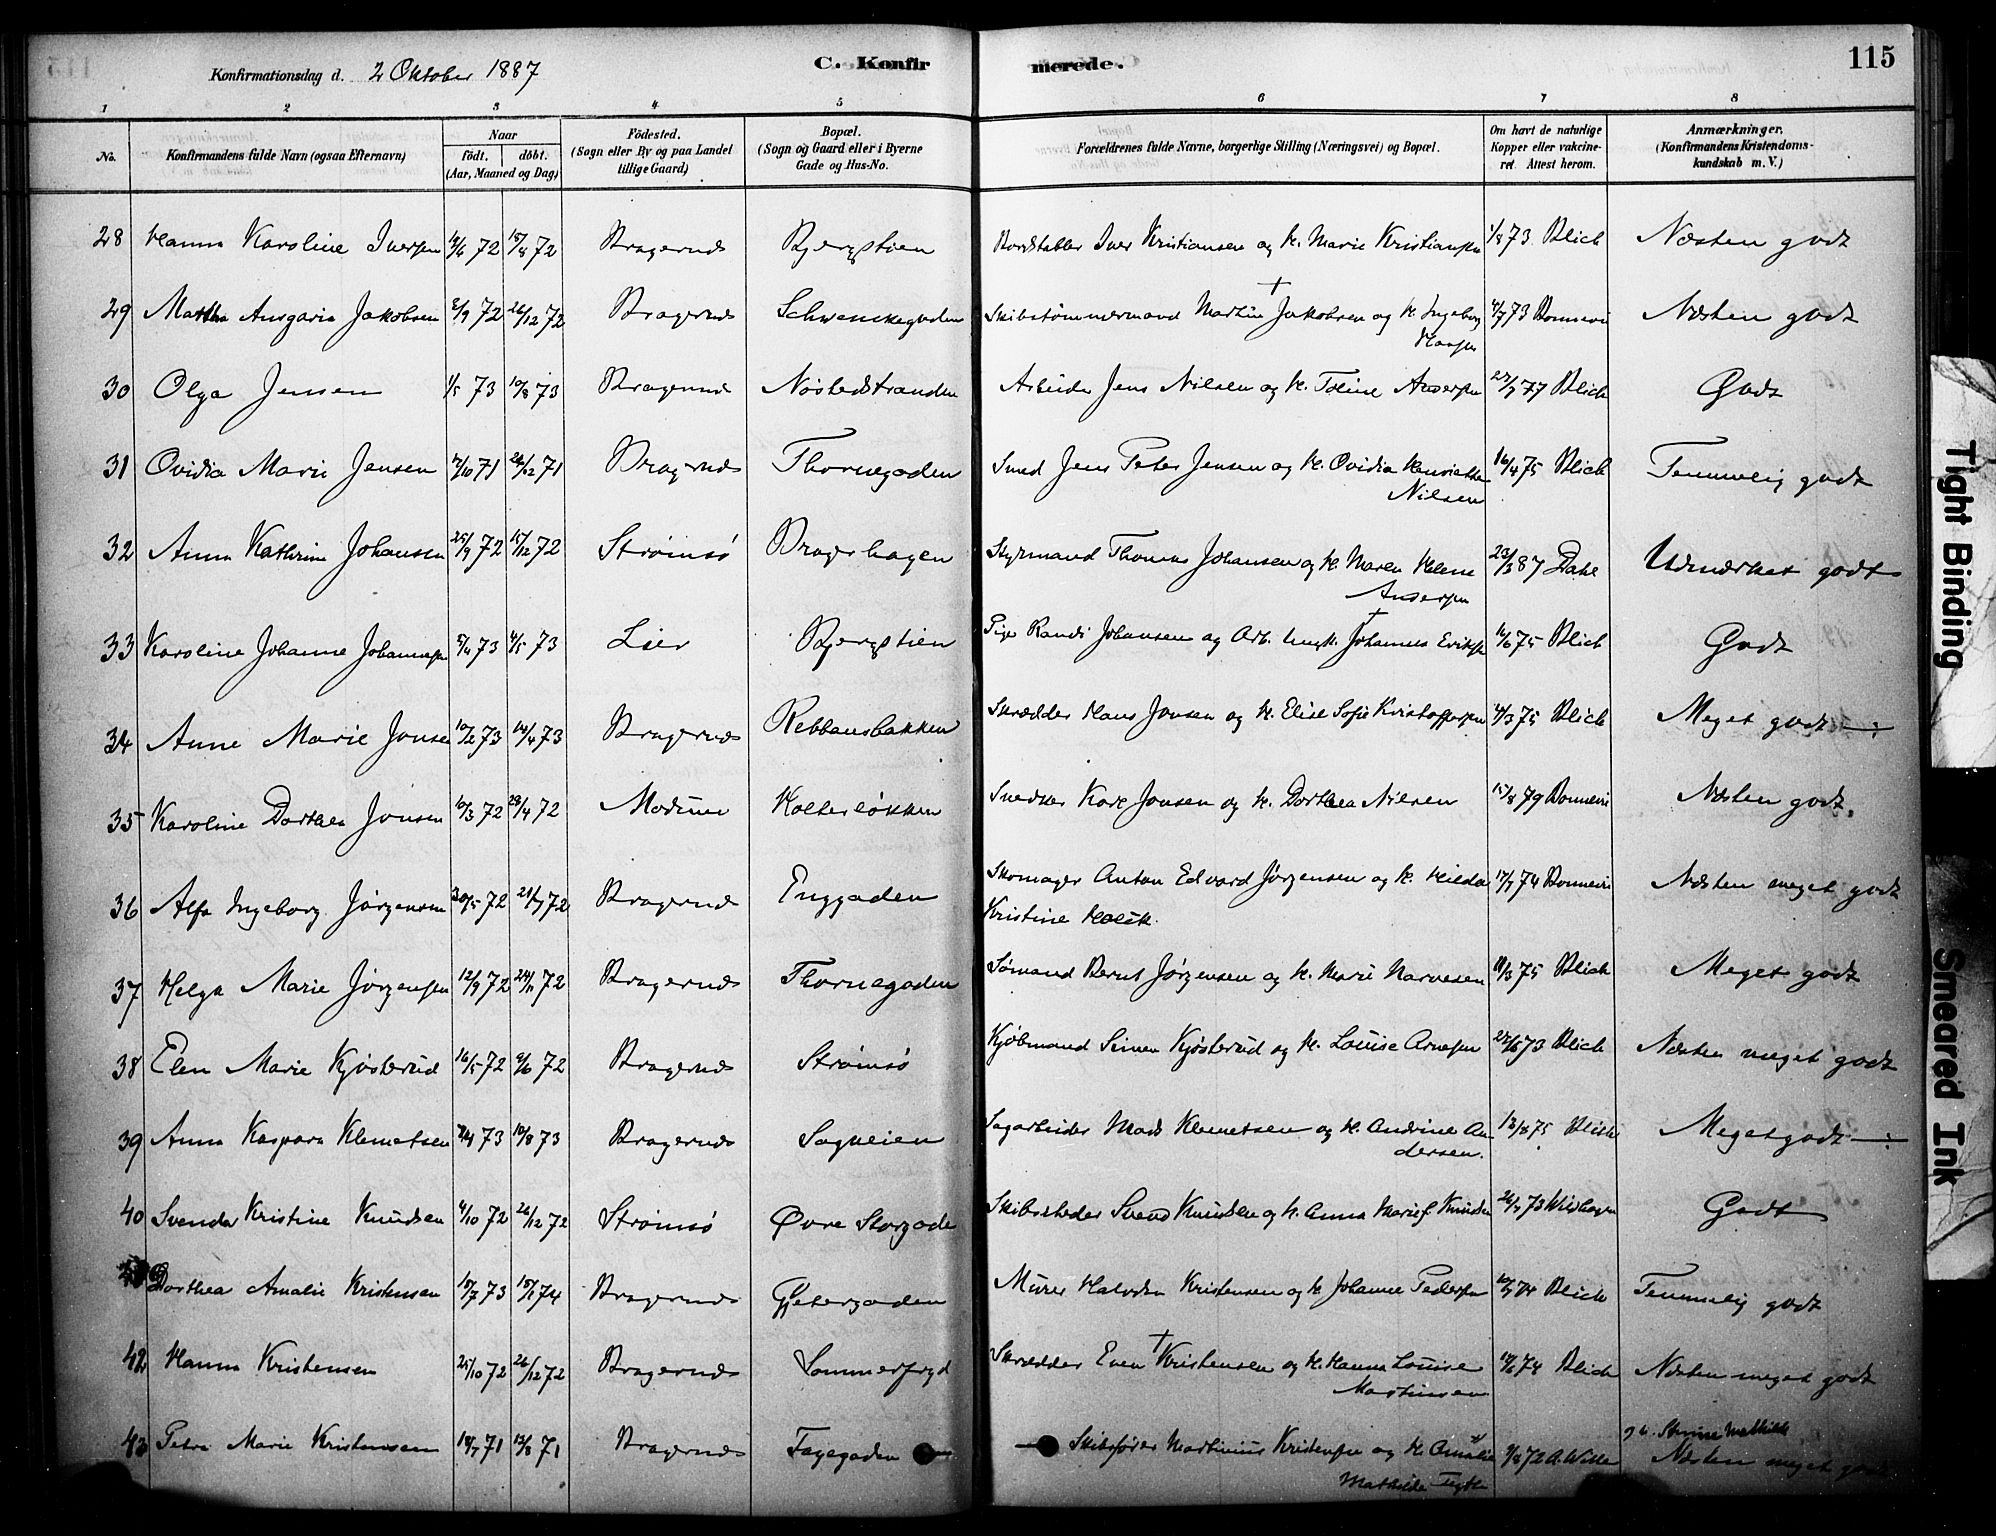 115
Konfirmationsdag d. 2 Oktober 1887
C. Konfirmerede.
1 2 3 4 5 6 7 8
No. Konfirmandens fulde Navn (ogsaa Efternavn) Naar födt. döbt. (Aar, Maaned og Dag) Födested. (Sogn eller By og paa Landet tillige Gaard) Bopæl. (Sogn og Gaard eller i Byerne Gade og Hus-No. Forældrenes fulde Navne, borgerlige Stilling (Næringsvei) og Bopæl. Om havt de naturlige Kopper eller vakcineret. Attest herom. Anmærkninger. (Konfirmandens Kristendomskundskab m. V.)
28 Hanna Karoline Iversen 72 18/8 72 Bragernæs Bjergstien Bordstabler Iver Kristiansen og H. Marie Kristiansen 1/8 73 Blich Næsten godt
29 Martha Ansgaria Jakobsen 2/9 72 26/12 72 Bragernæs Schwenckegaden Skibstømmermand Martin † Jakobsen og H. Ingeborg 4/7 73 Bonnevie Næsten godt
30 Olga Jensen 1/5 73 10/8 73 Bragernæs Nøstedstranden Arbeider Jens Nilsen og H. Toline Andersen 77 Blich Godt
31 Ovidia Marie Jensen 71 26/12 71 Bragernæs Thornegaden Smed Jens Peter Jensen og H. Ovidia Henriette Nilsen 16/4 75 Blich Temmelig godt
32 Anna Kathrine Johansen 25/9 72 15/12 72 Strømsø Bragerhagen Styrmand Thomas Johansen og H. Maren Helene Andersen 87 Dahl Udmærket godt
33 Karoline Johanne Johannesen 73 4/5 73 Lier Bjergstien Pige Randi Johansen og Arb. Ungk. † Johannes Eriksen 16/6 75 Blich Godt
34 Anne Marie Jonsen 10/2 73 14/4 73 Bragernæs Rebbansbakken Skrædder Hans Jonsen og H. Elise Sofie Kristoffersen 4/3 75 Blich Meget godt ÷
35 Karoline Dorthea Jonsen 10/3 72 28/4 72 Modum Kolterløkken Snedker Karl Jonsen og H. Dorthea Nilsen 15/8 79 Bonnevie Næsten godt.
36 Alfa Ingeborg Jørgensen 30/5 72 21/7 72 Bragernæs Enggaden Skomager Anton Edvard Jørgensen og H. Hilda Kristine 17/7 74 Bonnevie Næsten meget godt
37 Helga Marie Jørgensen 12/9 72 24/11 72 Bragernæs Thornegaden Sømand Bernt Jørgensen og H. Marie Narvesen 11/3 75 Blich Meget godt
38 Elen Marie Kjøsterud 16/5 72 9/6 72 Bragernæs Strømsø Kjøbmand Simen Kjøsterud og H. Louise Arnesen 73 Blich Næsten meget godt
39 Anna Kaspara Klemetsen 73 10/8 73 Bragernæs Sagveien Sagarbeider Mads Klemetsen og H. Andrine Andersen. 13/8 75 Blich Meget godt ÷
40 Svenda Kristine Knudsen 4/10 72 26/12 72 Strømsø Øvre Storgade Skibsreder Svend Knudsen og H. Anna Marie Knudsen 73 Godt
Dorthea Amalie Kristensen 18/7 73 18/1 74 Bragernæs Gjetergaden Murer Halvdan Kristensen og H. Johanne Pedersen 74 Blich Temmelig godt
42 Hanna Kristensen 25/10 72 26/12 72 Bragernæs Sommerfryd Skrædder Even † Kristensen og H. Hanna Louise Martinsen 74 Blich Næsten meget godt
43 Petra Marie Kristensen 18/7 71 13/8 71 Bragernæs Fagegaden Skibsfører Martinius Kristensen og H. Amalie Mathilde 72 A. Wille Næsten meget godt
Tight Binding
Smeared Ink